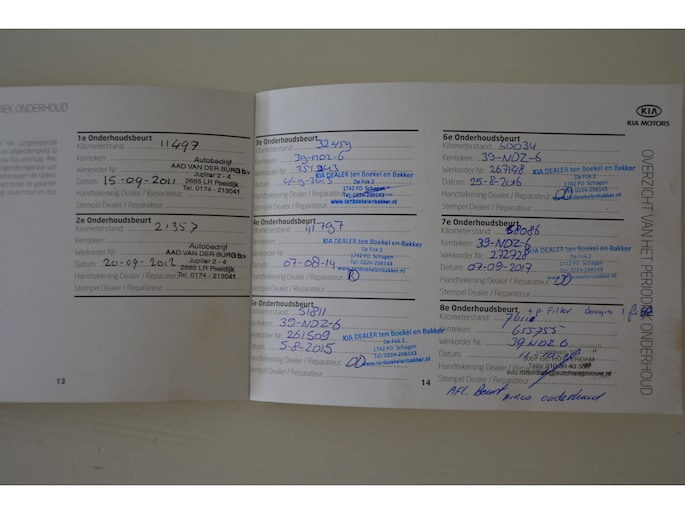 IEK ONDERHOUD
1e Onderhoudsbeurt
Kilometerstand: 11497
Kenteken:
Werkorder Nr.
Datum: 15-09-2011
Handtekening Dealer / Reparateur
Stempel Dealer / Reparateur:
Autobedrijf
AAD VAN DER BURG b.v.
Jupiter 2 - 4
2685 LR Poeldijk
Tel. 0174 - 213041
2e Onderhoudsbeurt
Kilometerstand: 21357
Kenteken:
Werkorder Nr.
Datum: 20-09-2012
Handtekening Dealer / Reparateur
Stempel Dealer / Reparateur:
Autobedrijf
AAD VAN DER BURG b.v.
Jupiter 2 - 4
2685 LR Poeldijk
Tel. 0174 - 213041
13
3e Onderhoudsbeurt
32459
39-NDZ-6
KIA DEALER ten Boekel en Bakker
De Fok 2
1742 PD Schagen
Tel: 0224-298143
www.tenboekelenbakker.nl
Handtekening Dealer / Reparateur
Stempel Dealer / Reparateur:
4e Onderhoudsbeurt
Kilometerstand
Kenteken:
Werkorder Nr.
Datum: 07-08-14
Handtekening Dealer / Reparateur
Stempel Dealer / Reparateur:
KIA DEALER ten Boekel en Bakker
De Fok 2
1742 PD Schagen
Tel: 0224-298143
www.tenboekelenbakker.nl
5e Onderhoudsbeurt
Kilometerstand: 51811
39-NDZ-6
261509
5-8-2015
Handtekening Dealer / Reparateur:
Stempel Dealer / Reparateur:
KIA DEALER ten Boekel en Bakker
De Fok 2
1742 PD Schagen
Tel: 0224-298143
www.tenboekelenbakker.nl
14
KIA
KIA MOTORS
OVERZICHT VAN HET PERIODIEK ONDERHOUD
6e Onderhoudsbeurt
Kilometerstand: 60034
Kenteken: 39-NDZ-6
Werkorder Nr.
Datum: 25-8-2016
Handtekening Dealer / Reparateur
Stempel Dealer / Reparateur:
KIA DEALER ten Boekel en Bakker
De Fok 2
1742 PD Schagen
Tel: 0224-298143
www.tenboekelenbakker.nl
7e Onderhoudsbeurt
Kilometerstand: 68086
Kenteken: 39-NDZ-6
Werkorder Nr. 272728
Datum: 07-09-2017
Handtekening Dealer / Reparateur
Stempel Dealer / Reparateur:
KIA DEALER ten Boekel en Bakker
De Fok 2
1742 PD Schagen
Tel: 0224-298143
www.tenboekelenbakker.nl
8e Onderhoudsbeurt
Kilometerstand
Kenteken: 655755
Werkorder Nr. 39 NDZ 6
Datum
Handtekening Dealer / Reparateur
Stempel Dealer / Reparateur:
Afl. Beurt Airco onderhoud